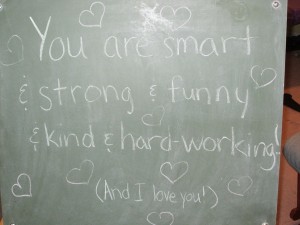 You are smart
& strong & funny
& kind & hard-working!
(And I love you!)